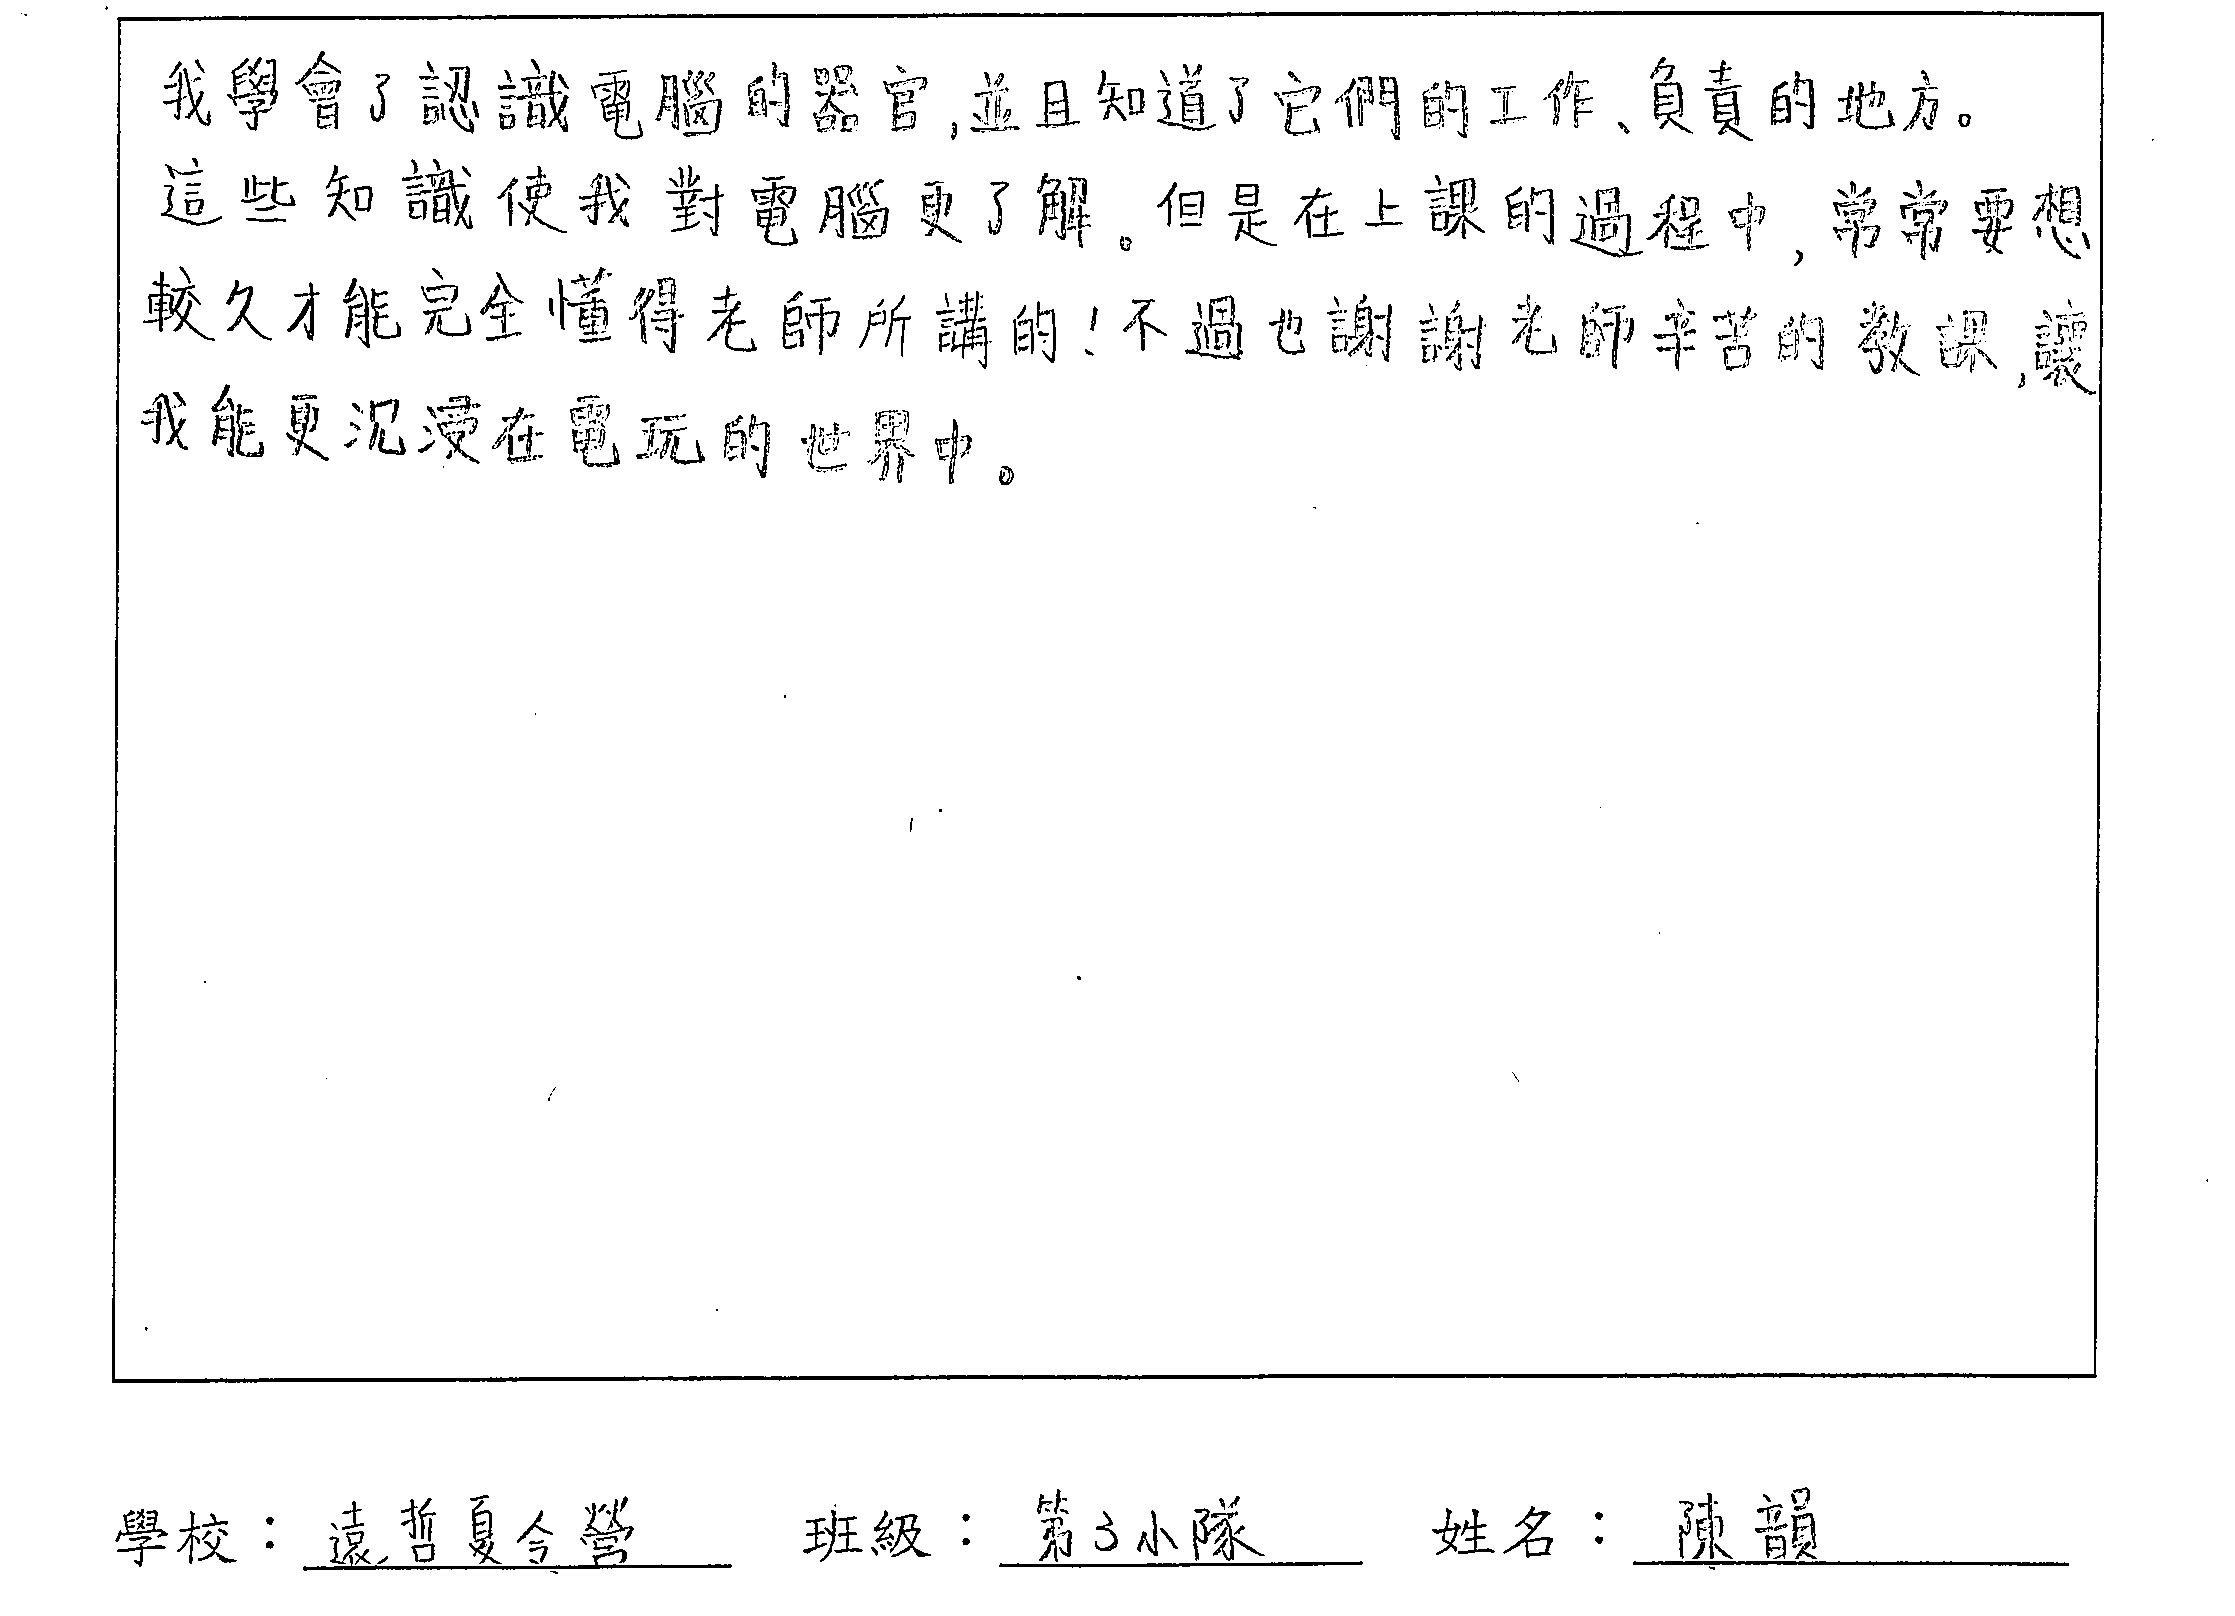 我學會了認識電腦的器官,並且知道了它們的工作、負責的地方。
這些知識使我對電腦更了解。但是在上課的過程中,常常要想
較久才能完全懂得老師所講的!不過也謝謝老師辛苦的教課,讓
我能更沉浸在電玩的世界中。
學校：遠哲夏令營 班級：第3小隊 姓名：陳韻